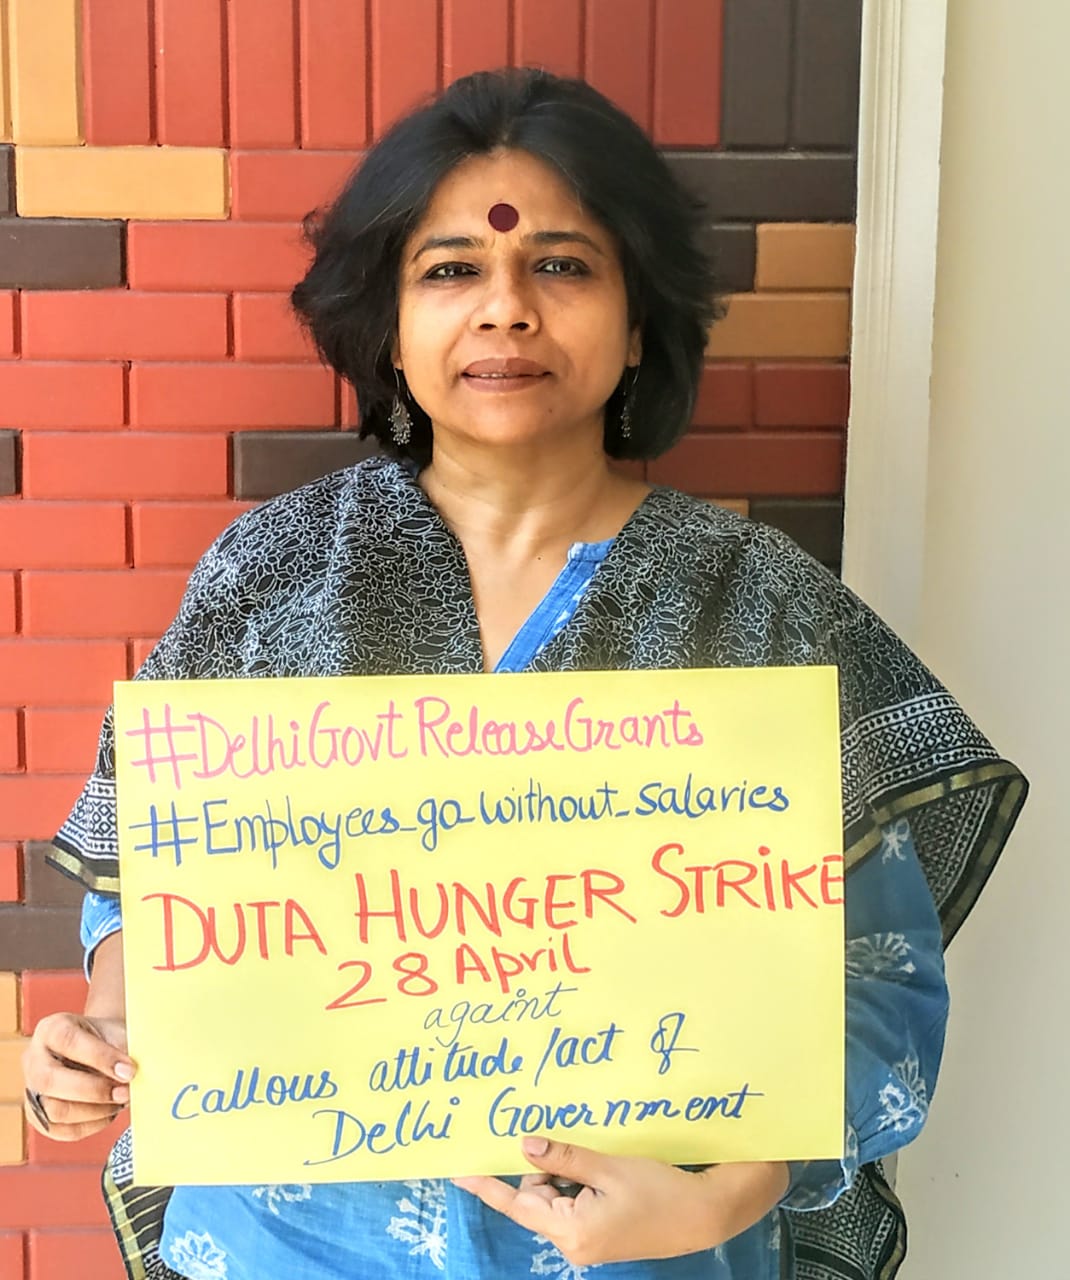 #DelhiGovt ReleaseGrants
#Employees_go_without_salaries
DUTA HUNGER STRiKE
28 April
againt
callous attitude/act of
Delhi Government